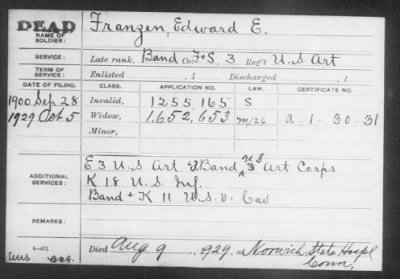 DEAD
NAME OF SOLDIER:
Franzen, Edward E.
SERVICE:
Late rank, Band Co. F+S, 3 Reg't U.S. Art
TERM OF SERVICE:
Enlisted , 1 Discharged , 1
DATE OF FILING. CLASS. APPLICATION NO. LAW. CERTIFICATE NO.
1900 Sep 28 Invalid, 1255165 S
1929 Oct 5 Widow, 1,652,653 m/26 a-1-30-31
Minor,
ADDITIONAL SERVICES:
E 3 U.S. Art & Band 3 U.S. Art Corps
K 18 U.S. Inf.
Band + K 11 U.S.V. Cav
REMARKS:
Died Aug 9, 1929, at Norwich State Hospl
Conn.